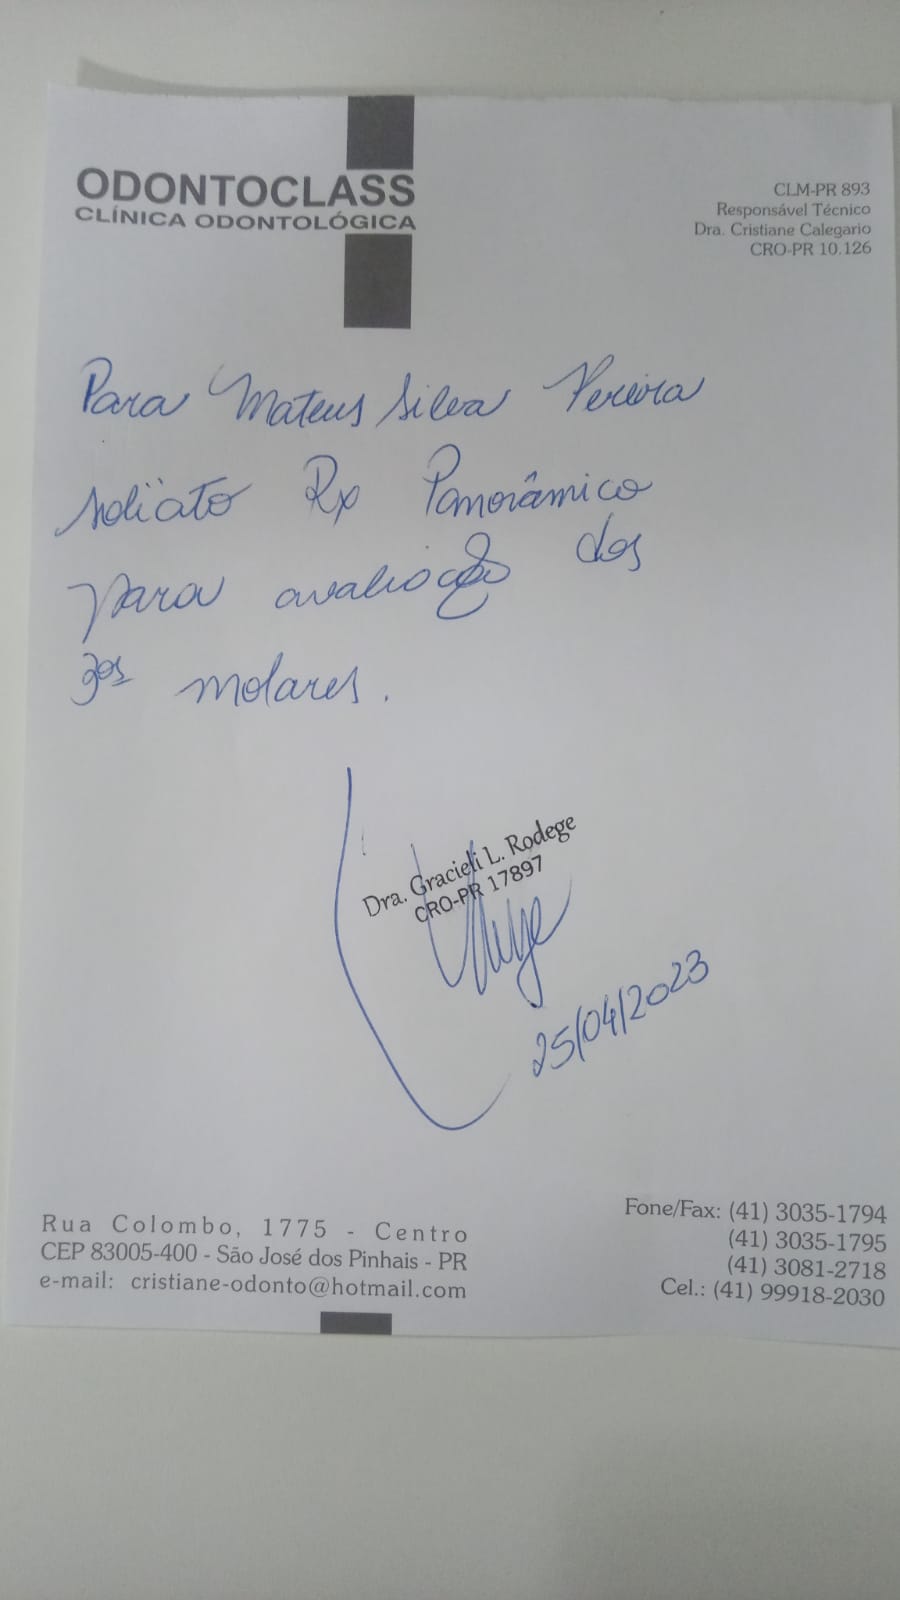 ODONTOCLASS
CLÍNICA ODONTOLÓGICA
CLM-PR 893
Responsável Técnico
Dra. Cristiane Calegario
CRO-PR 10.126
Para Mateus Silva Pereira
solicito Rx Panorâmico
para avaliação dos
3ºs molares.
Dra. Gracieli L. Rodege
CRO-PR 17897
25/04/2023
Rua Colombo, 1775 - Centro
CEP 83005-400 - São José dos Pinhais - PR
e-mail: cristiane-odonto@hotmail.com
Fone/Fax: (41) 3035-1794
(41) 3035-1795
(41) 3081-2718
Cel.: (41) 99918-2030